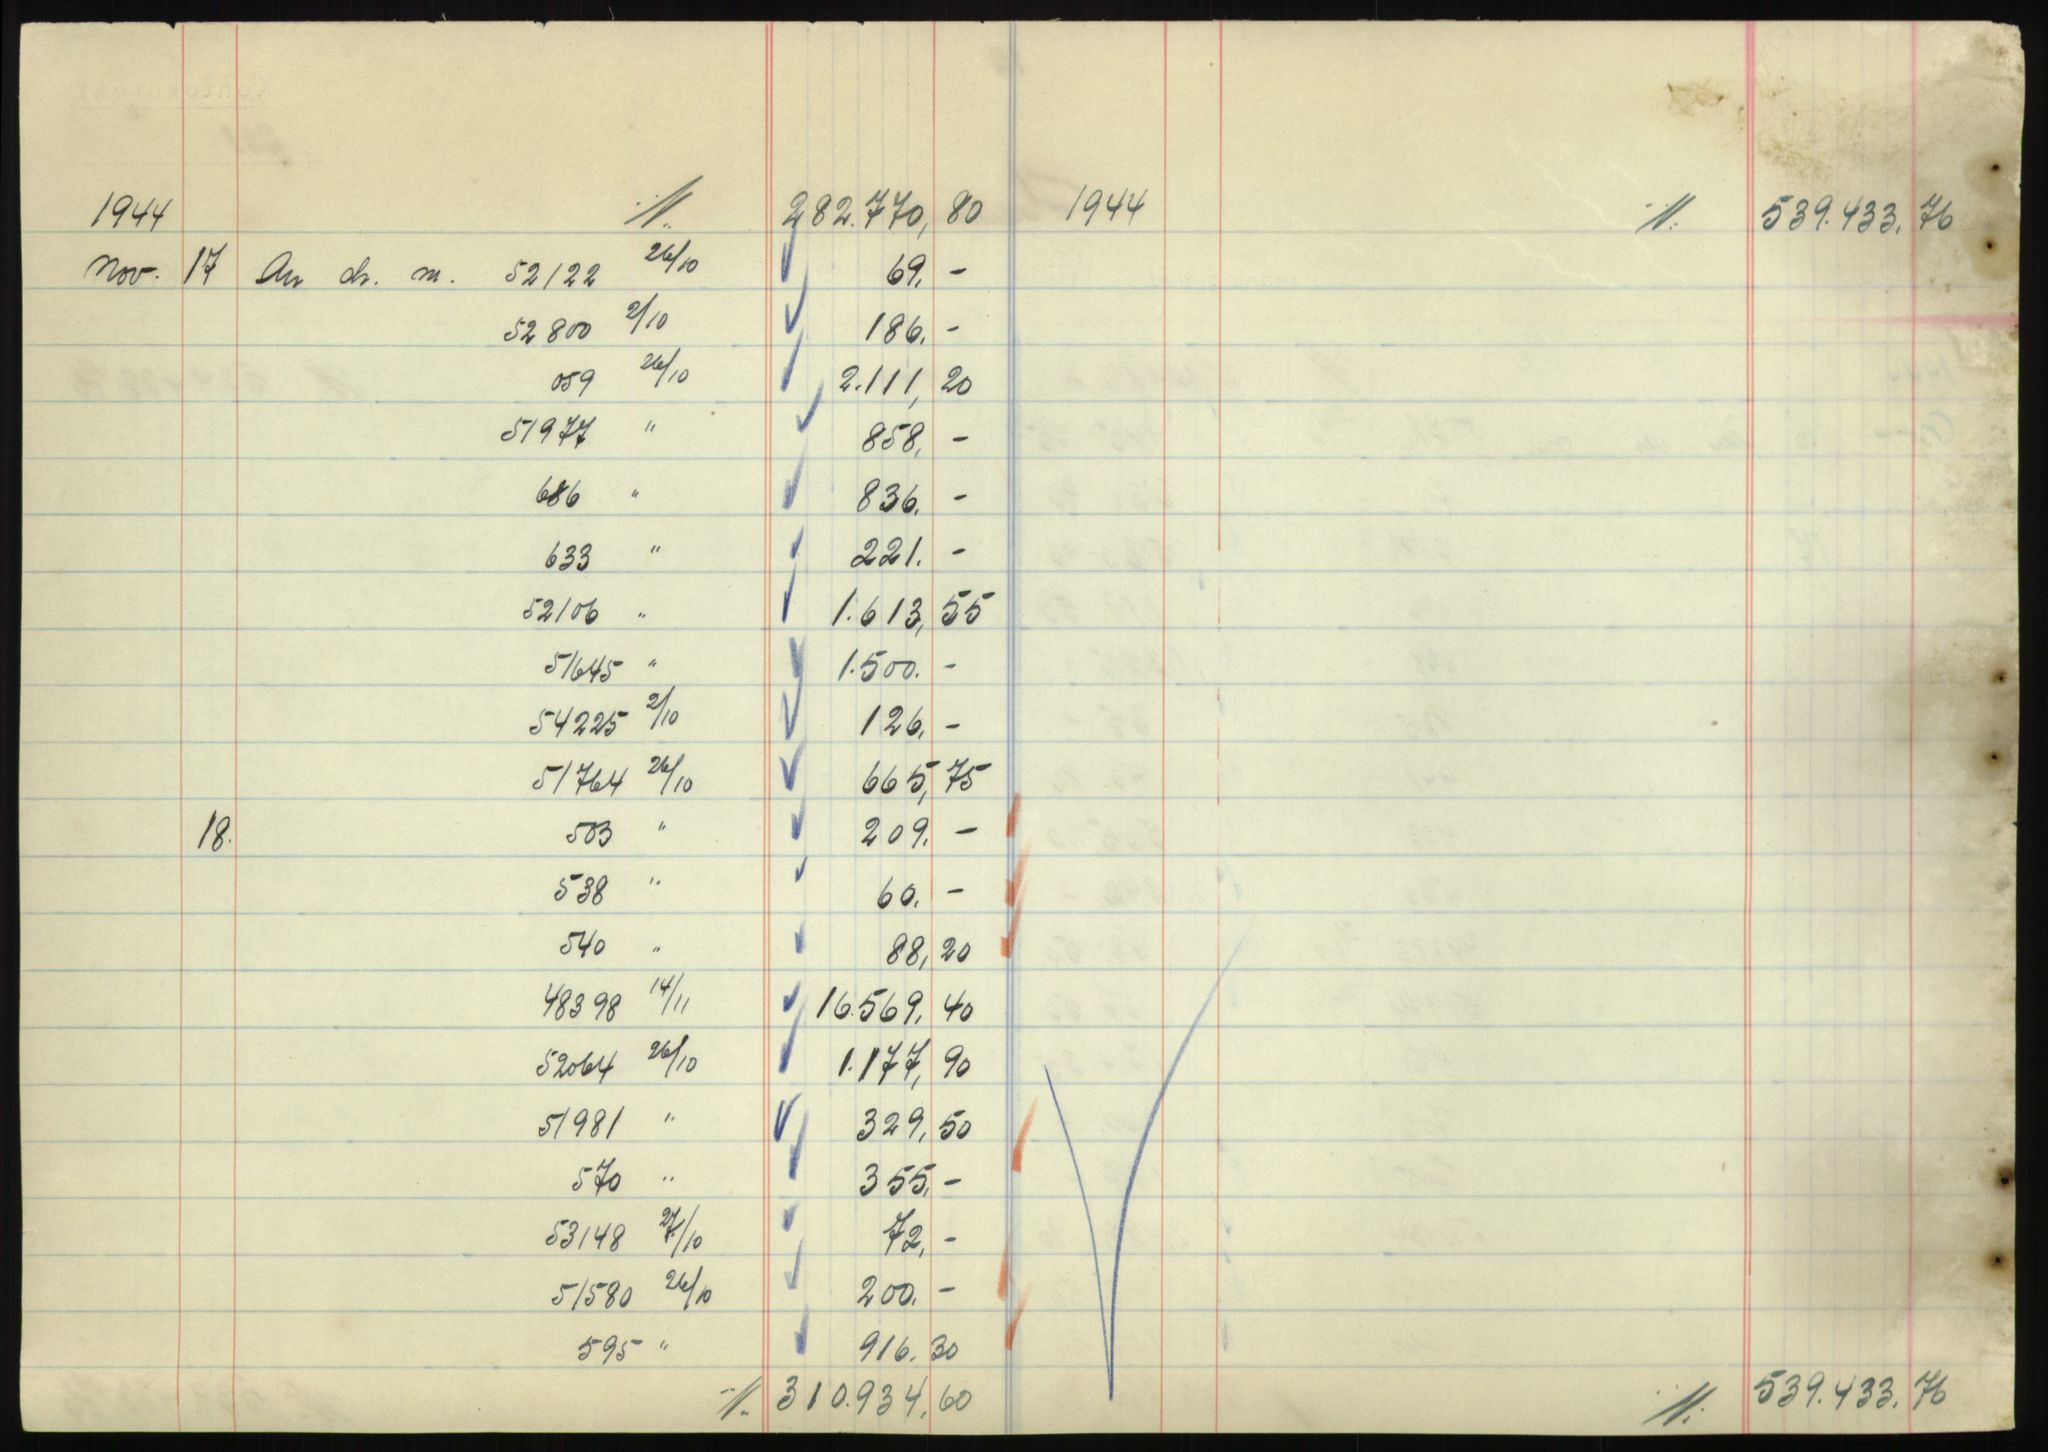 1944 ·/· 282.770,80
Nov. 17 An dr. m. 52122 26/10 69,-
52800 2/10 186,-
059 26/10 2.111,20
51977 " 858,-
686 " 836,-
633 " 221.-
52106 " 1.613,55
51645 " 1.500.-
54225 2/10 126,-
51764 26/10 665,75
18. 503 " 209.-
538 " 60.-
540 " 88,20
48398 14/11 16.569,40
52064 26/10 1.177,90
51981 " 329,50
570 " 355,-
53148 27/10 72,-
51580 26/10 200.-
595 " 916.30
·/· 310.934,60
1944 ·/· 539.433.76
·/· 539.433.76